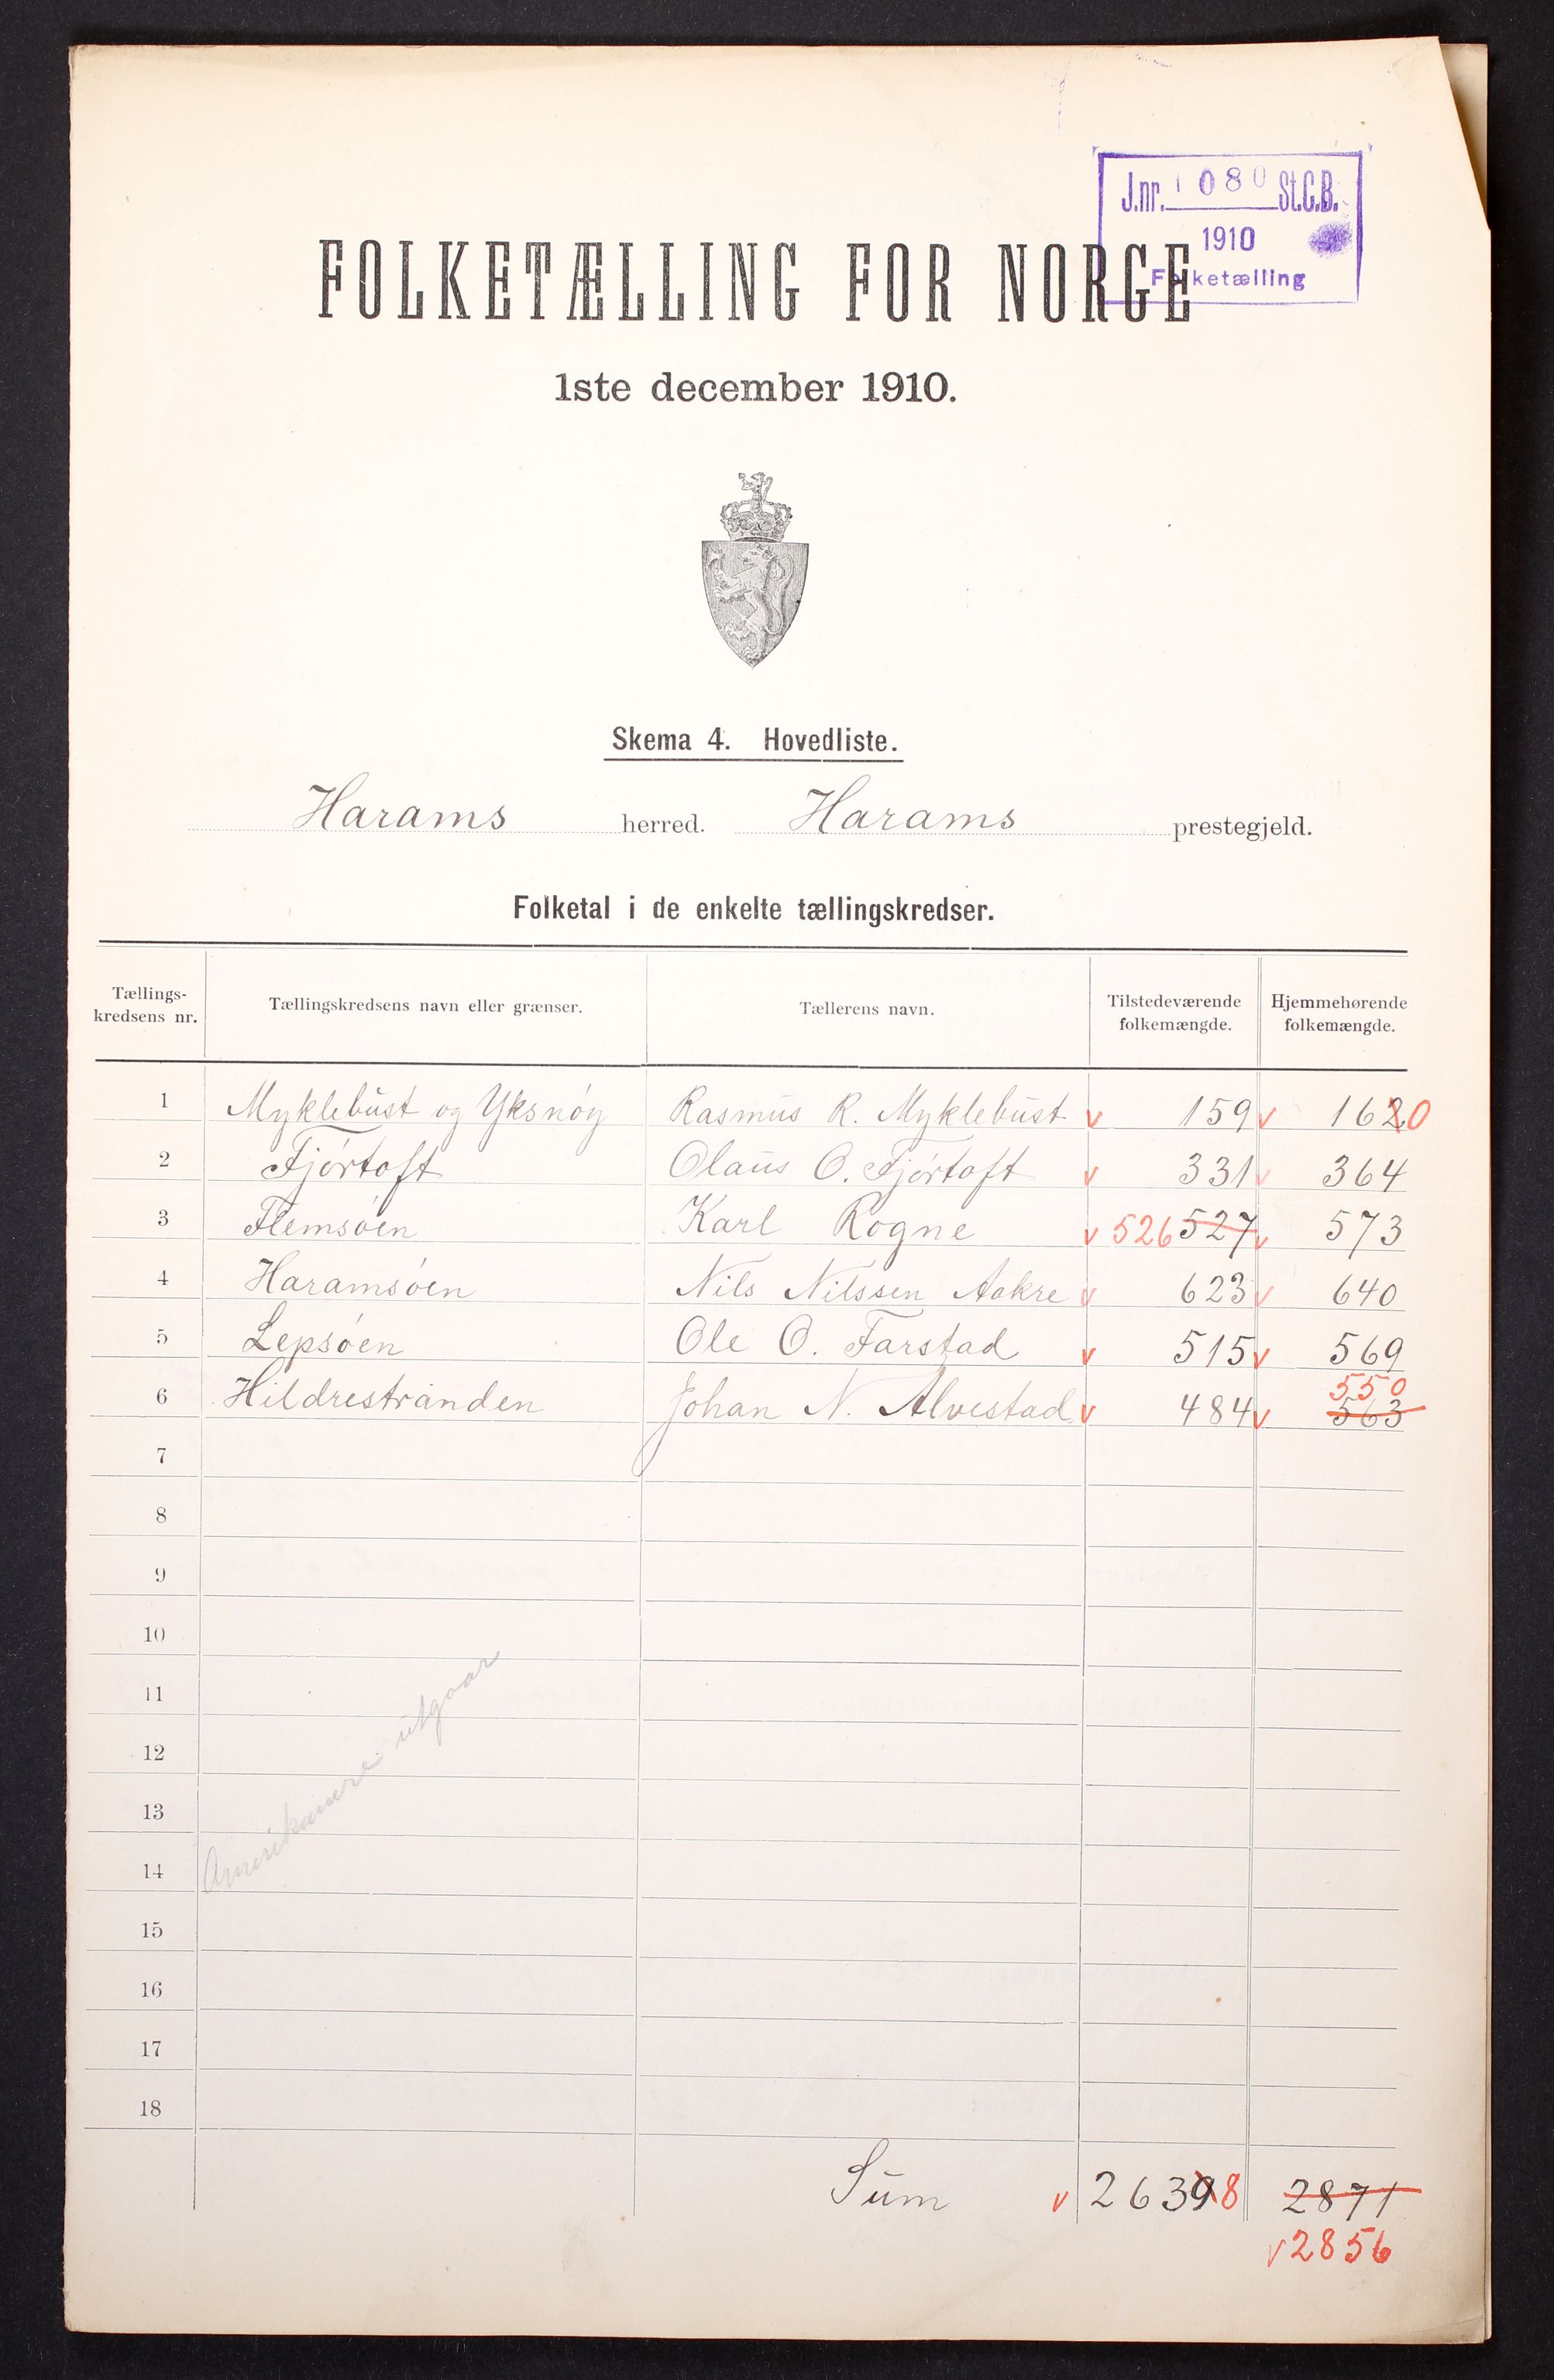 J.nr. 1080 St.C.B.
1910
Folketælling
FOLKETÆLLING FOR NORGE
1ste december 1910.
Skema 4. Hovedliste.
Harams herred. Harams prestegjeld.
Folketal i de enkelte tællingskredser.
Tællings-kredsens nr. Tællingskredsens navn eller grænser. Tællerens navn. Tilstedeværende folkemængde. Hjemmehørende folkemængde.
1 Myklebust og Yksnøy Rasmus R. Myklebust v 159 v 1620
2 Fjørtoft Olaus O. Fjørtoft v 331 v 364
3 Flemsøen Karl Rogne v 526 527 v 573
4 Haramsøen Nils Nilssen Aakre v 623 v 640
5 Lepsøen Ole O. Farstad v 515 v 569
6 Hildrestranden Johan N. Alvestad v 484 v 550 563
7
8
9
10
11
12
13
14
15
16
17
18
Amerikanere utgaar
Sum v 26398 2871
v 2856